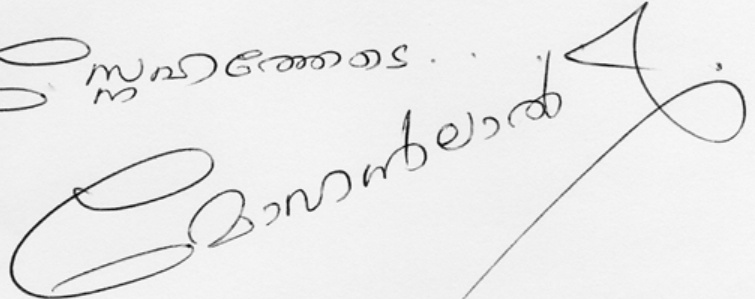 സ്നേഹത്തോടെ...
മോഹൻലാൽ